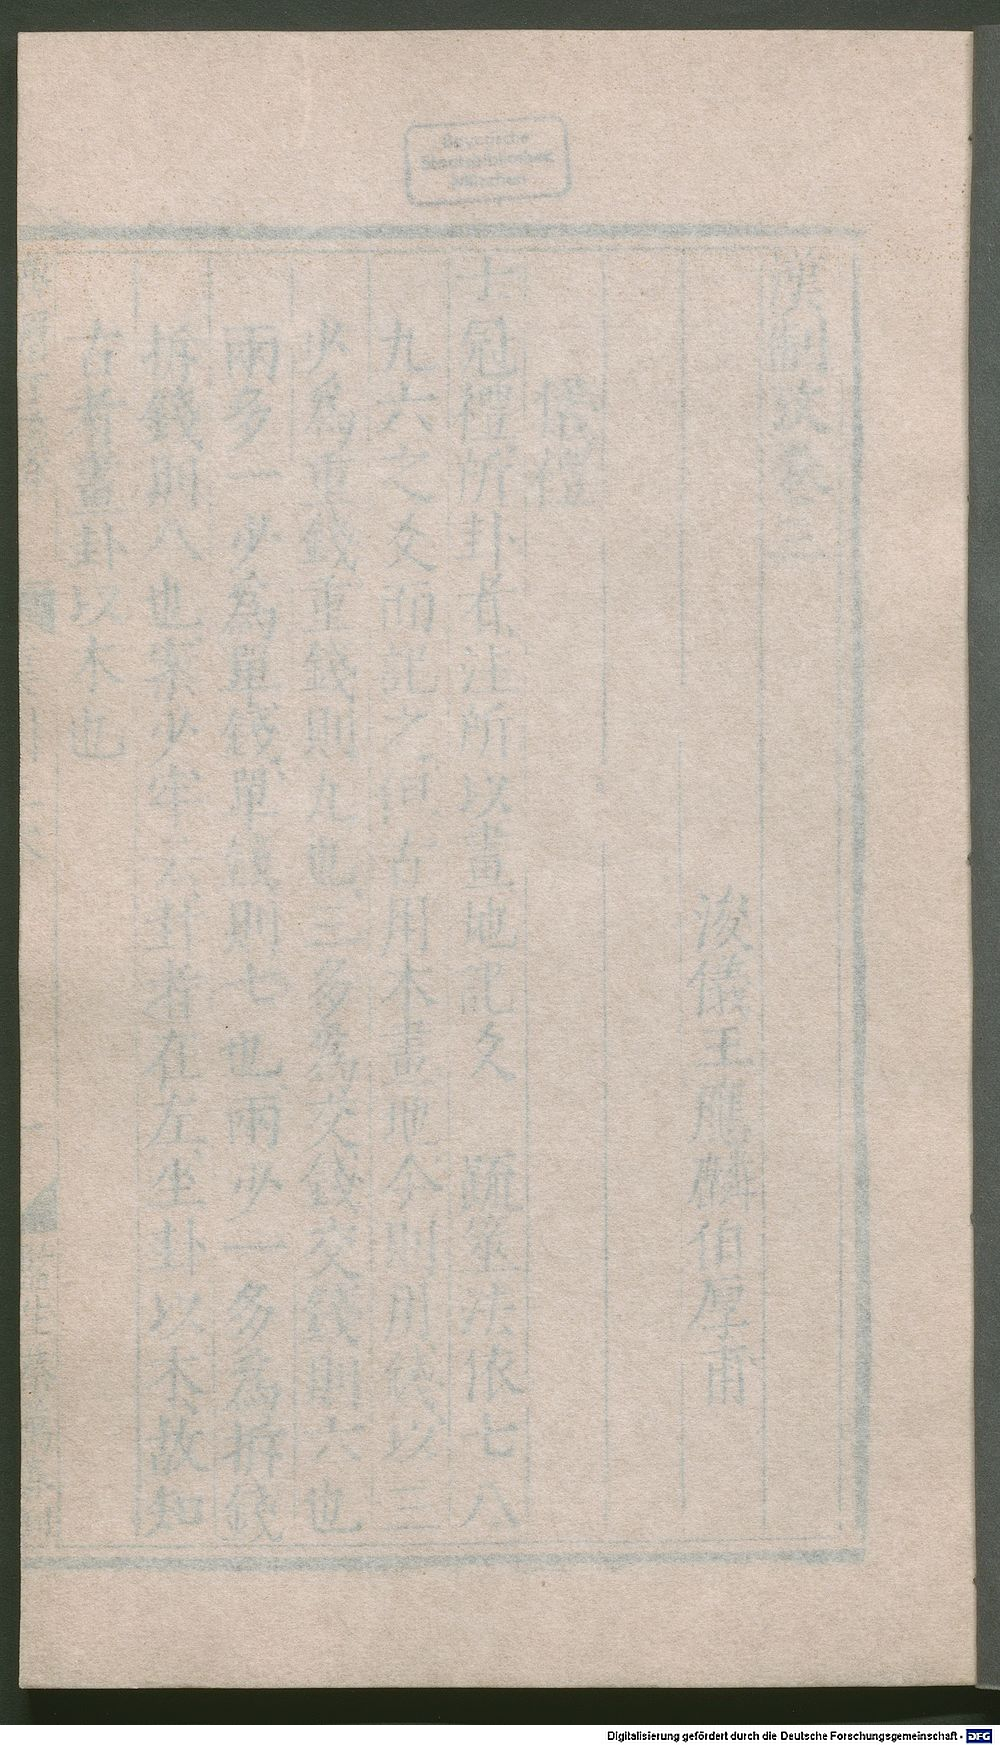 漢制攷卷三
浚儀王應麟伯厚甫
儀禮
士冠禮所卦者注所以畫地記爻 疏筮法依七八
九六之爻而記之但古用木畫地今則用錢以三
少爲重錢重錢則九也三多爲交錢交錢則六也
兩多一少爲單錢單錢則七也兩少一多爲拆錢
拆錢則八也案少牢云卦者在左坐卦以木故知
古者畫卦以木也
Bayerische
Staatsbibliothek
München
Digitalisierung gefördert durch die Deutsche Forschungsgemeinschaft - DFG